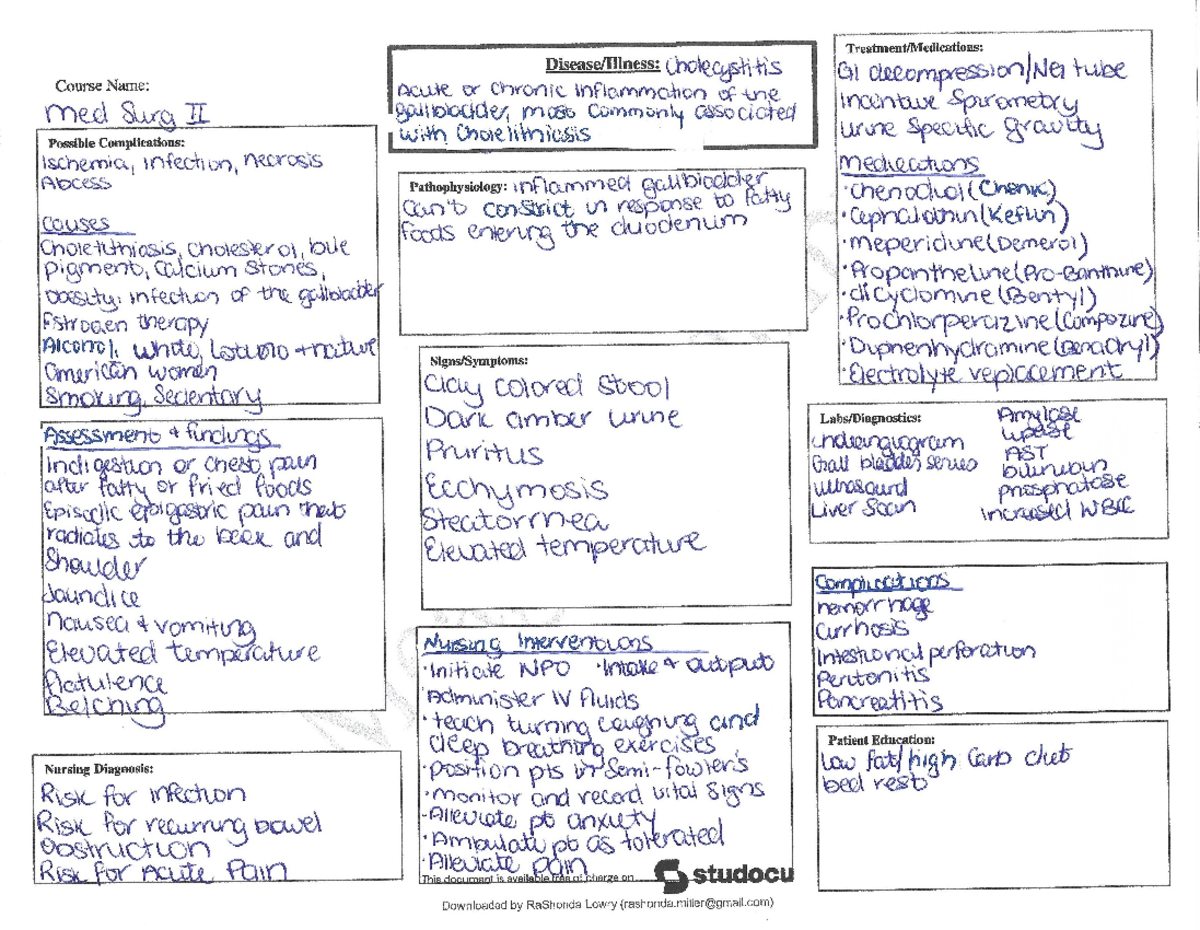 Course Name:
Med Surg II
Possible Complications:
Ischemia, infection, necrosis
Abcess
Causes
Cholelithiasis, cholesterol, bile
pigment, calcium stones,
obesity, infection of the gallbladder
Estrogen therapy
Alcohol, white, Latino + native
american women
Smoking, Sedentary
Assessment & findings
Indigestion or chest pain
after fatty or fried foods
Episodic epigastric pain that
radiates to the back and
Shoulder
Jaundice
Nausea & vomiting
Elevated temperature
Flatulence
Belching
Nursing Diagnosis:
Risk for infection
Risk for recurring bowel
obstruction
Risk for Acute Pain
Disease/Illness: Cholecystitis
Acute or chronic inflammation of the
gallbladder, most commonly associated
with cholelithiasis
Pathophysiology: inflammed gallbladder
can't constrict in response to fatty
foods entering the duodenum
Signs/Symptoms:
Clay colored stool
Dark amber urine
Pruritus
Ecchymosis
Steatorrhea
Elevated temperature
Nursing Interventions
·Initiate NPO ·Intake & output
·Administer IV fluids
·teach turning coughing and
deep breathing exercises
·position pts in semi-fowler's
·monitor and record vital signs
-Alleviate pt anxiety
·Ambulate pt as tolerated
·Alleviate pain
This document is available free of charge on
studocu
Treatment/Medications:
GI decompression/NG tube
Incentive Spirometry
Urine Specific gravity
Medications
·Chenodiol (Chenix)
·Cephalothin (Keflin)
·meperidine (Demerol)
·Propantheline (Pro-Banthine)
·dicyclomine (Bentyl)
·Prochlorperazine (Compazine)
·Diphenhydramine (Benadryl)
·Electrolyte replacement
Labs/Diagnostics:
cholangiogram
Gall bladder series
ultrasound
Liver Scan
Amylase
Lipase
AST
bilirubin
phosphatase
increased WBC
Complications
hemorrhage
cirrhosis
Intestional perforation
Peritonitis
Pancreatitis
Patient Education:
Low fat/high carb diet
bed rest
Downloaded by RaShonda Lowry (rashonda.miller@gmail.com)